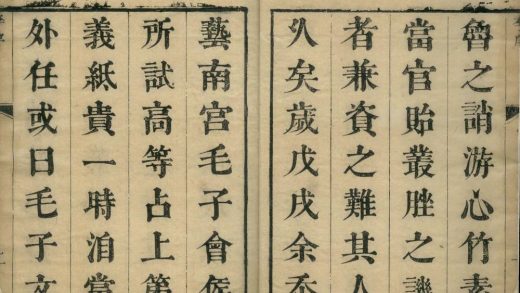 魯之誚游心竹素
當官貽叢脞之譏
者兼資之難其人
乆矣歲戊戌余忝
藝南宮毛子會侯
所試高等占上第
義紙貴一時洎當
外任或曰毛子文